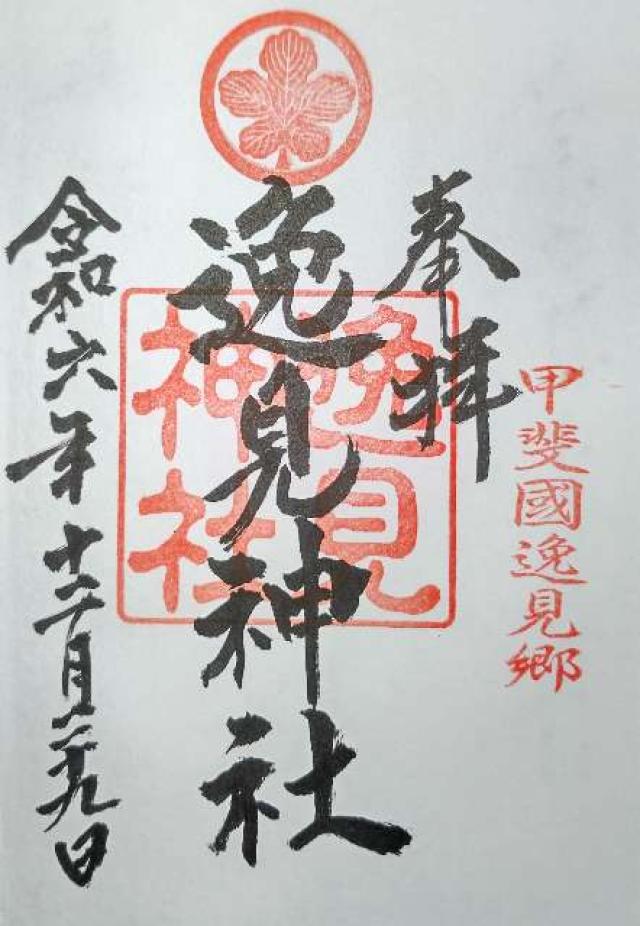 甲斐國逸見郷
奉拝
逸見神社
逸見
神社
令和六年十二月二十九日